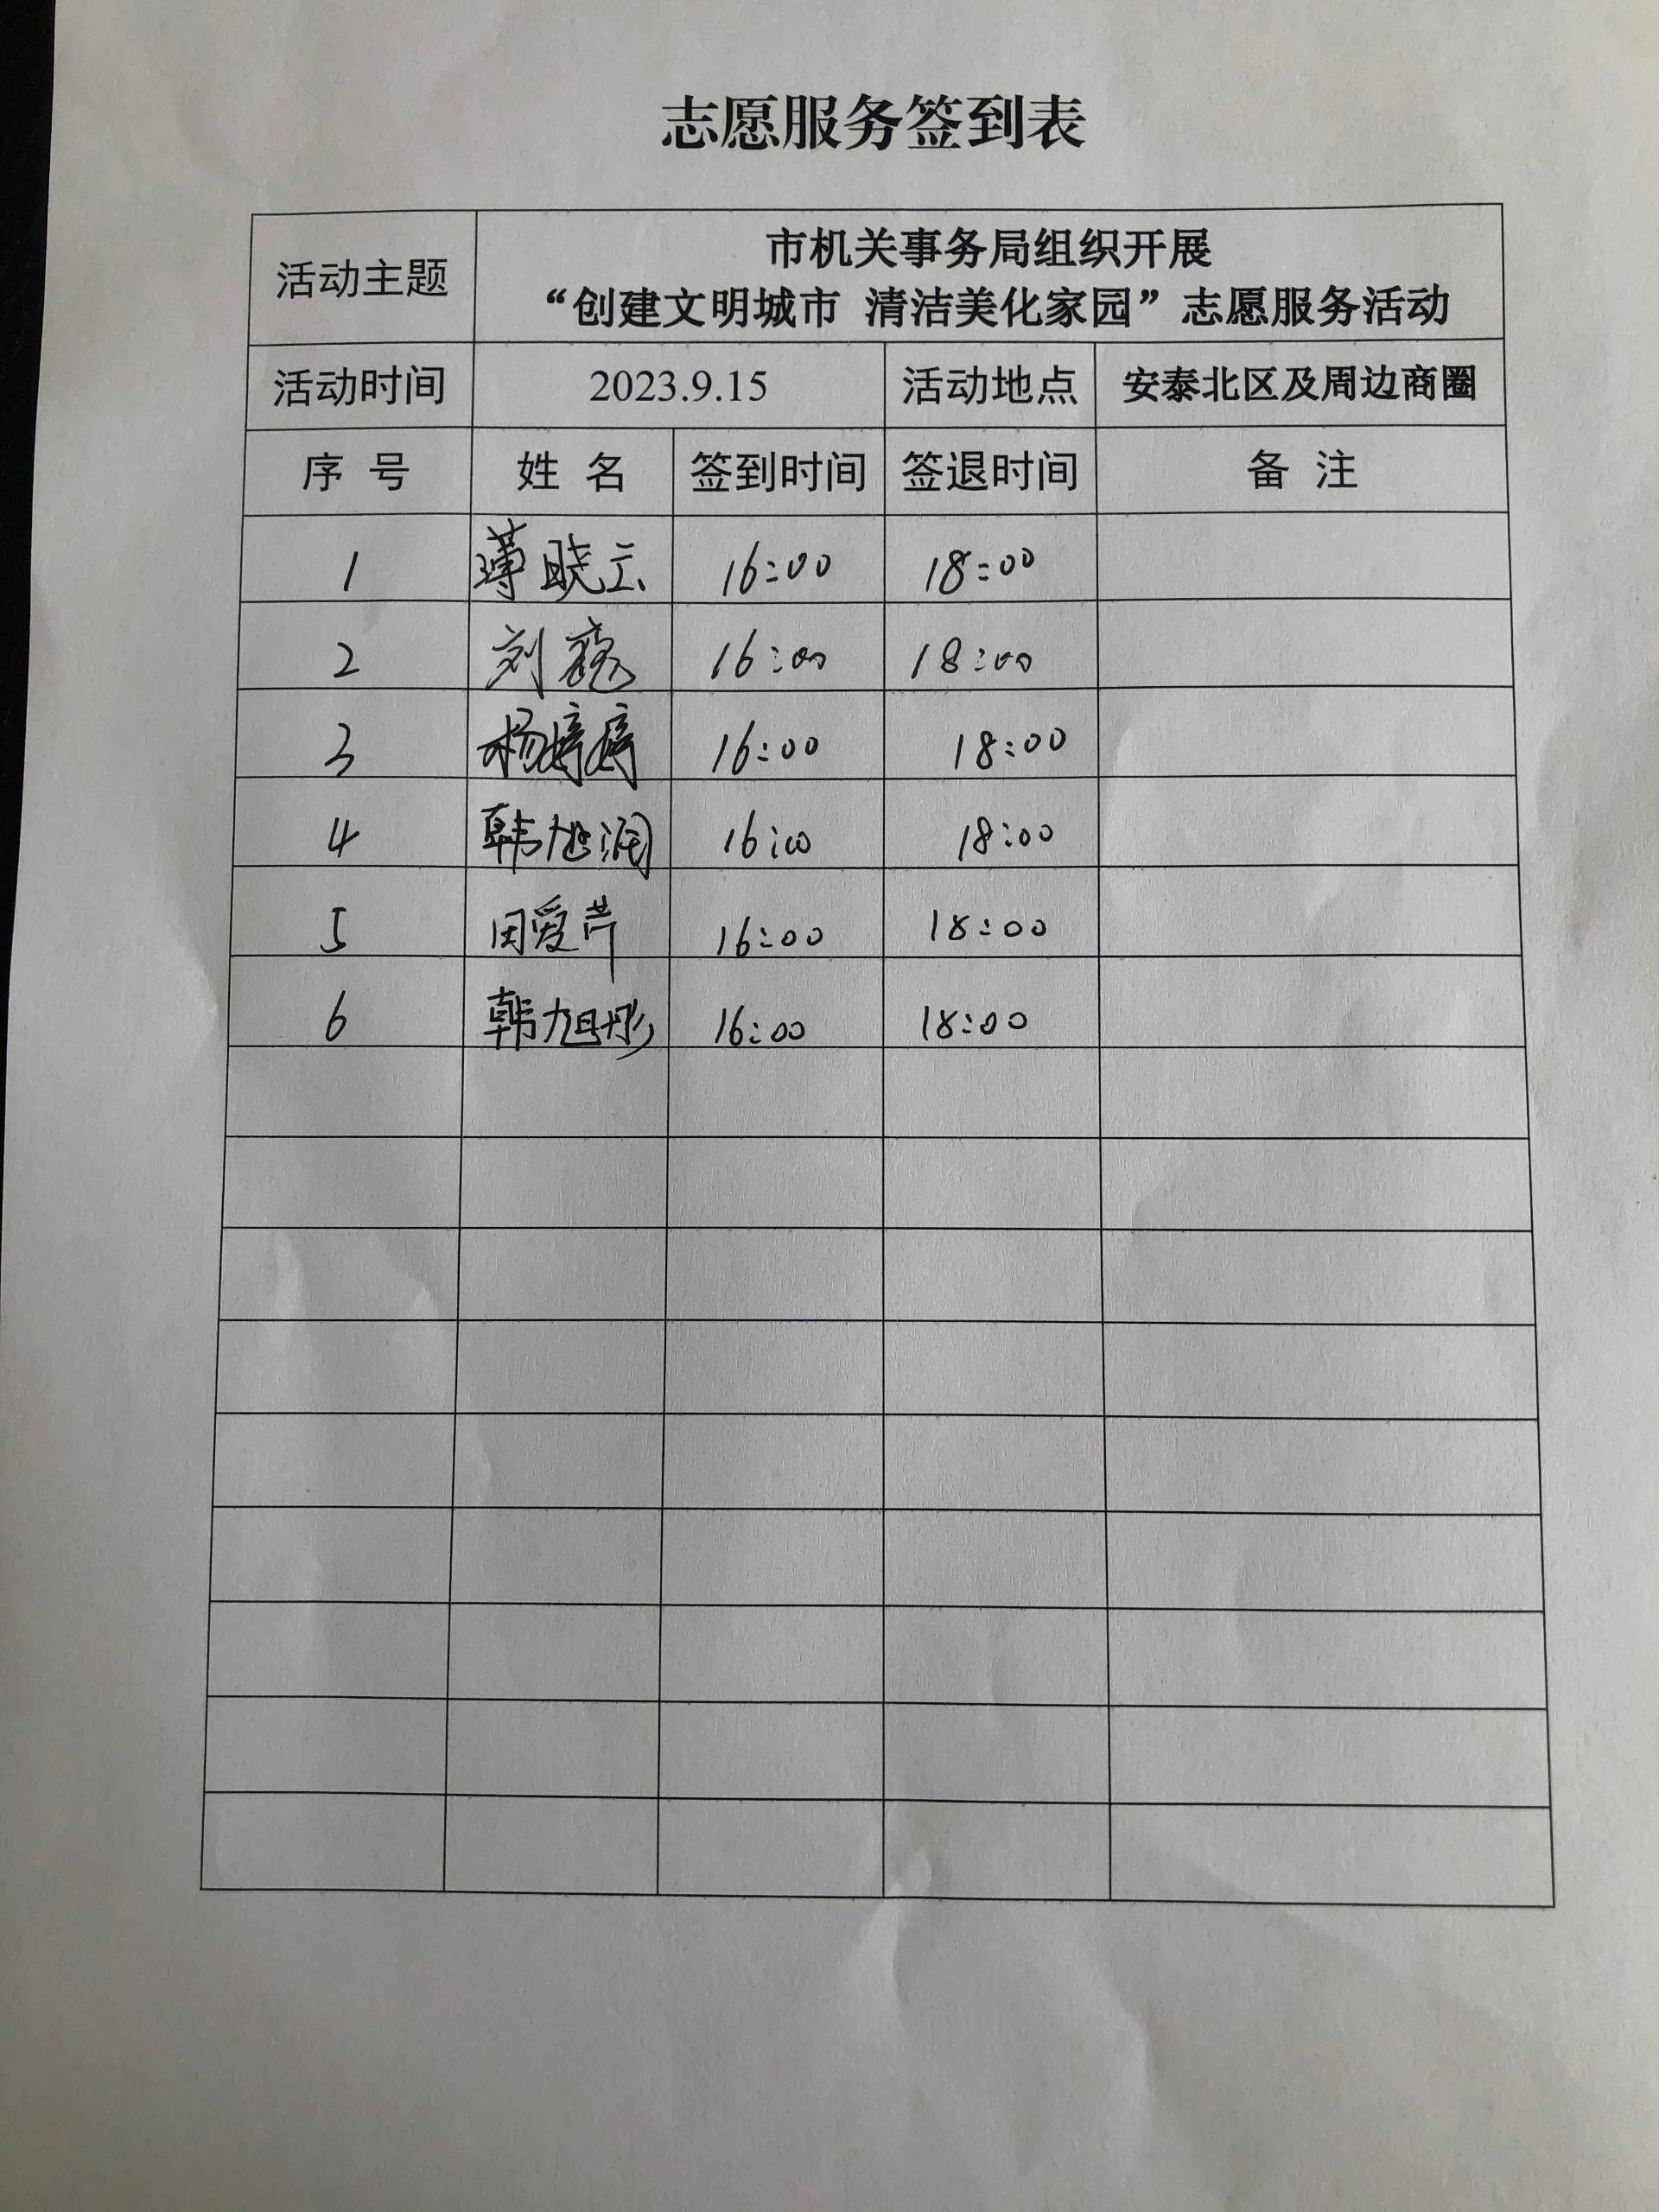 志愿服务签到表
活动主题
市机关事务局组织开展
“创建文明城市 清洁美化家园”志愿服务活动
活动时间 2023.9.15 活动地点 安泰北区及周边商圈
序 号 姓 名 签到时间 签退时间 备 注
1 薄晓云 16:00 18:00
2 刘巍 16:00 18:00
3 杨婷婷 16:00 18:00
4 韩旭润 16:00 18:00
5 田爱芹 16:00 18:00
6 韩旭彤 16:00 18:00